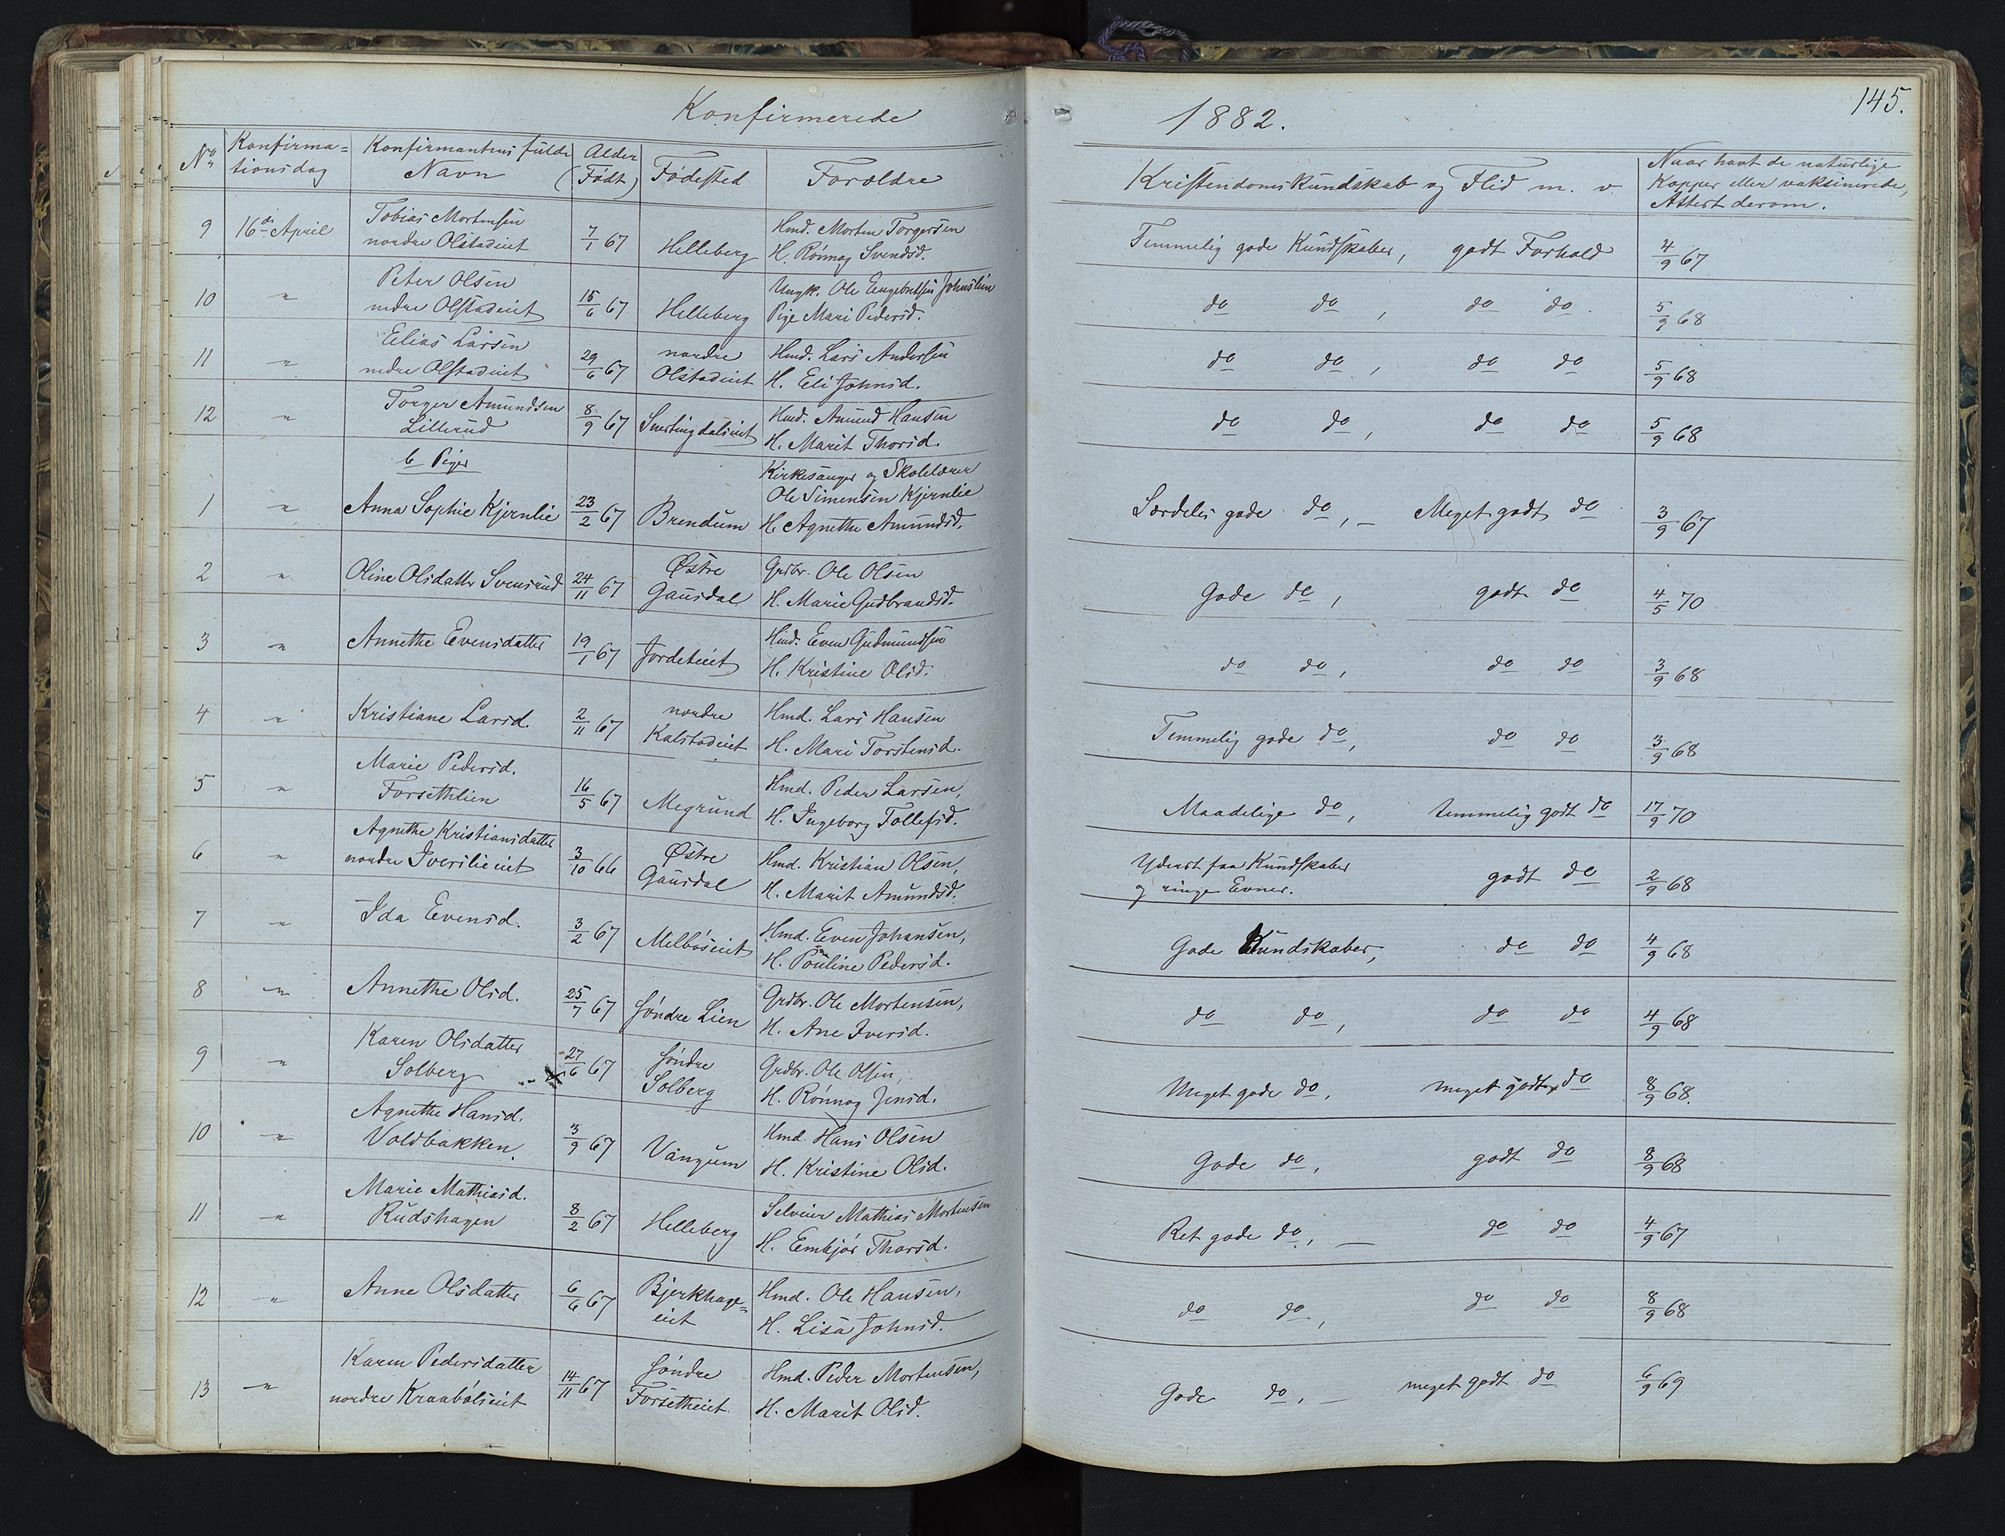 Konfirmerede
1882.
145.
No
Konfirma=
tionsdag
Konfirmantens fulde
Navn
Alder
(Født)
Fødested
Forældre
Kristendomskundskab og Flid m. v
Naar havt de naturlige
Kopper eller vaksinerede,
Attest derom.
9 16de April Tobias Mortensen
nordre Olstadeiet 7/1 67 Helleberg Hmd. Morten Torgersen
H. Rønnog Svendsd. Temmelig gode Kundskaber, godt Forhold 4/9 67
10 " Peter Olsen
nedre Olstadeiet 15/6 67 Helleberg Ungk. Ole Engebretsen Johnslien
Pige Mari Pedersd. do do, do do. 5/9 68
11 " Elias Larsen
nedre Olstadeiet 29/6 67 nordre
Olstadeiet Hmd. Lars Andersen
H. Eli Johnsd. do do, do do 5/9 68
12 " Torger Amundsen
Lillerud 8/9 67 Snertingdalseiet Hmd. Amund Hansen
H. Marit Thorsd. do do, do do 5/9 68
b Piger
1 " Anna Sophie Kjernlie 23/2 67 Brendum Kirkesanger og Skolelærer
Ole Simensen Kjernlie
H. Agnethe Amundsd. Særdeles gode do, — Meget godt do 3/9 67
2 " Oline Olsdatter Svensrud 24/11 67 Østre
Gausdal Grdbr. Ole Olsen
H. Marie Gudbrandsd. Gode do, godt do 4/5 70
3 " Annethe Evensdatter 19/1 67 Jordeteiet Hmd. Even Gudmundsen
H. Kristine Olsd. do do, do do 3/9 68
4 " Kristiane Larsd. 2/11 67 nordre
Kalstadeiet Hmd. Lars Hansen
H. Mari Torstensd. Temmelig gode do, do do 3/9 68
5 " Marie Pedersd.
Forsethlien 16/5 67 Megrund Hmd. Peder Larsen,
H. Ingeborg Tollefsd. Maadelige do, temmelig godt do 17/9 70
6 " Agnethe Kristiansdatter
nordre Iverslieeiet 3/10 66 Østre
Gausdal Hmd. Kristian Olsen,
H. Marit Amundsd. Yderst faa Kundskaber
og ringe Evner. godt do 2/9 68
7 " Ida Evensd. 3/2 67 Melbøseiet Hmd. Even Johansen,
H. Pouline Pedersd. Gode Kundskaber, do do 4/9 68
8 " Annethe Olsd. 25/7 67 Søndre Lien Grdbr. Ole Mortensen,
H. Ane Iversd. do do, do do 4/9 68
9 " Karen Olsdatter
Solberg 27/6 67 Søndre
Solberg Grdbr. Ole Olsen,
H. Rønnog Jensd. Meget gode do, meget godt do 8/9 68.
10 " Agnethe Hansd.
Voldbakken 3/9 67 Vangum Hmd. Hans Olsen
H. Kristine Olsd. Gode do, godt do 8/9 68
11 " Marie Mathiasd.
Rudshagen 8/2 67 Helleberg Selveier Mathias Mortensen
H. Embjør Thorsd. Ret gode do, — do do 4/9 67
12 " Anne Olsdatter 6/6 67 Bjerkhage=
eiet Hmd. Ole Hansen,
H. Lisa Johnsd. do do, do do 8/9 68
13 " Karen Pedersdatter
nordre Kraabølseiet 14/11 67 Søndre
Forsetheiet Hmd. Peder Mortensen,
H. Marit Olsd. Gode do, — meget godt do 6/9 69